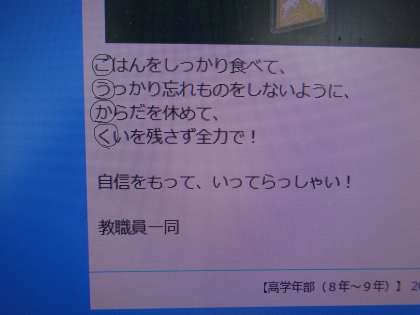 ごはんをしっかり食べて、
うっかり忘れものをしないように、
からだを休めて、
くいを残さず全力で！
自信をもって、いってらっしゃい！
教職員一同
【高学年部（８年～９年）】